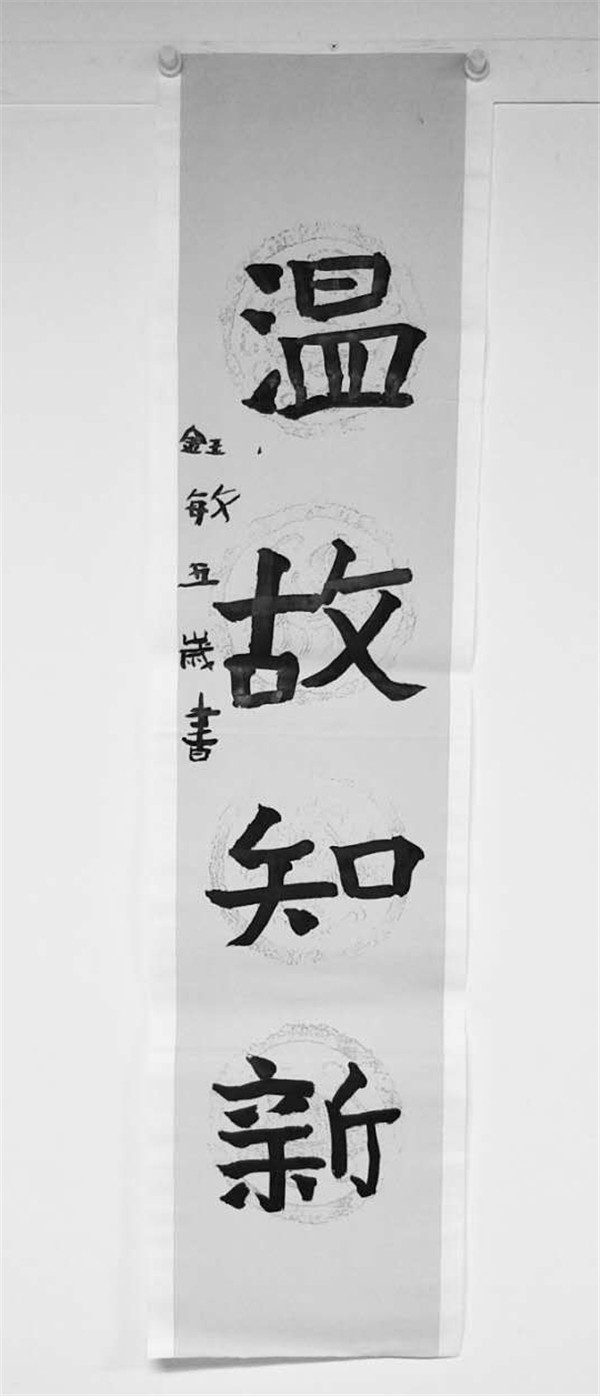 温故知新
鈺敏五歲書